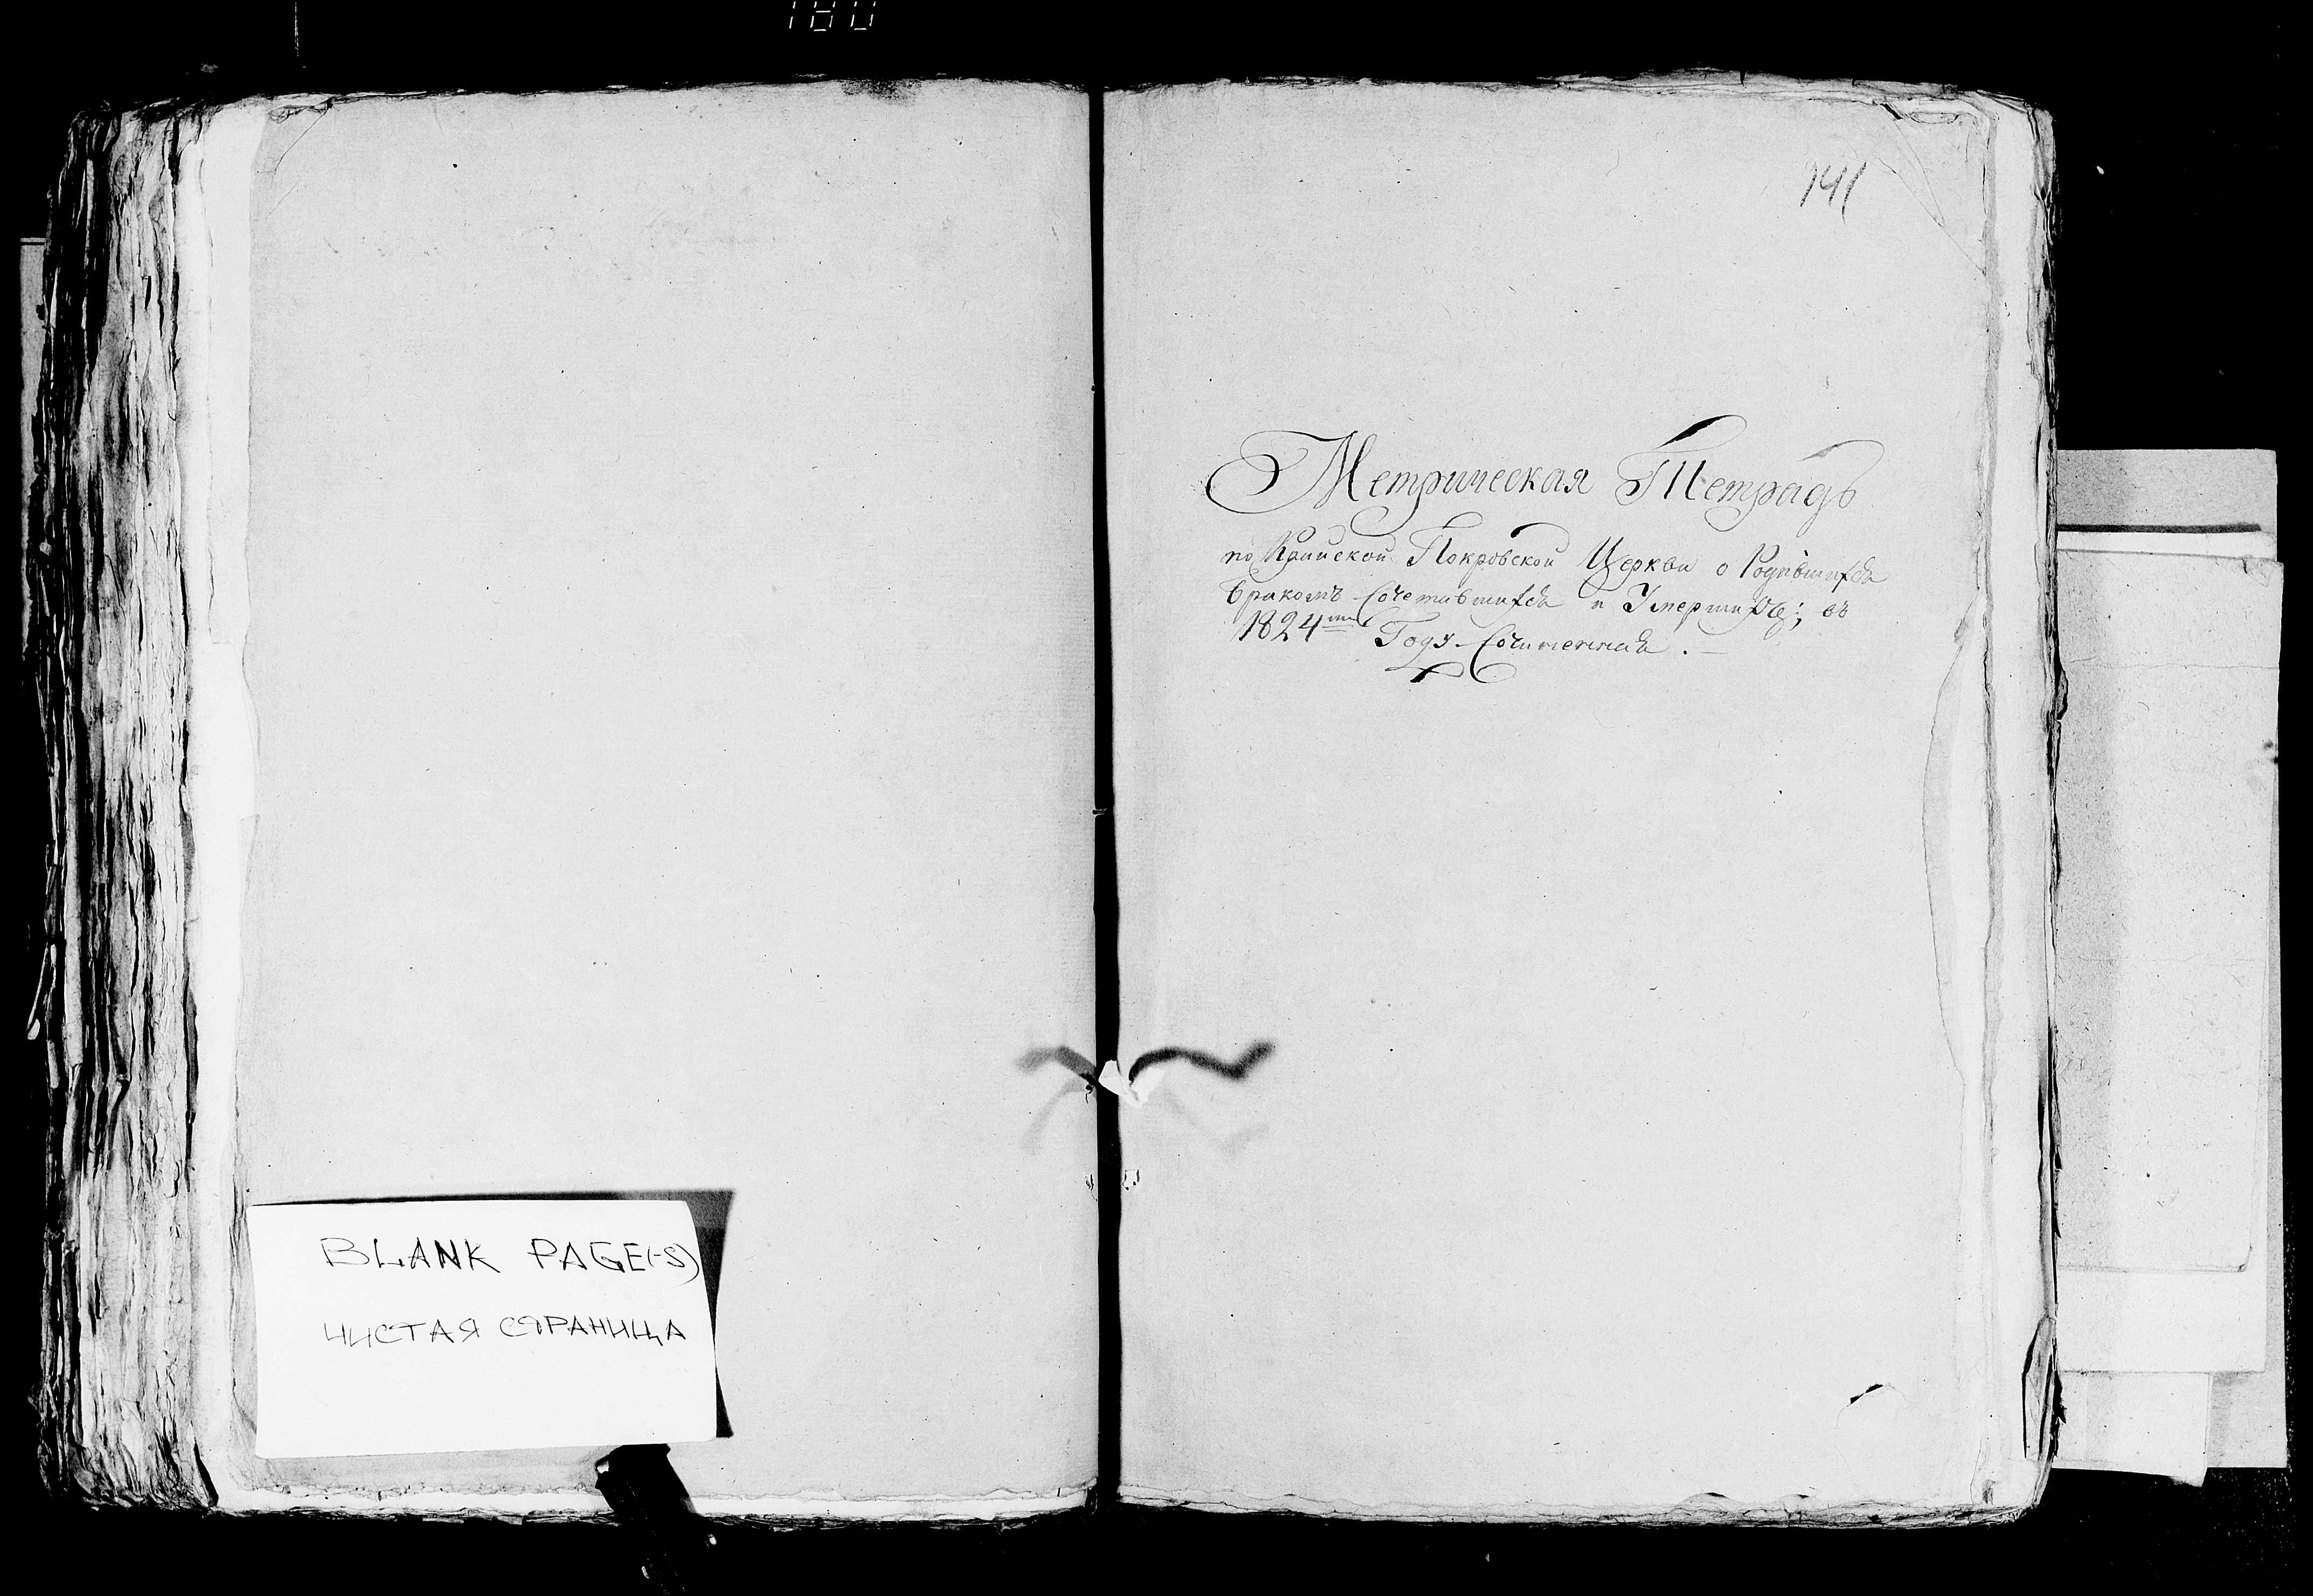 180
BLANK PAGE(-S)
ЧИСТАЯ СТРАНИЦА
141
Метрическая Тетрадь
по Покровской Церкви о Родившихся
бракомъ Сочетавшихся и Умершихъ; въ
1824мъ Году Сочиненная.